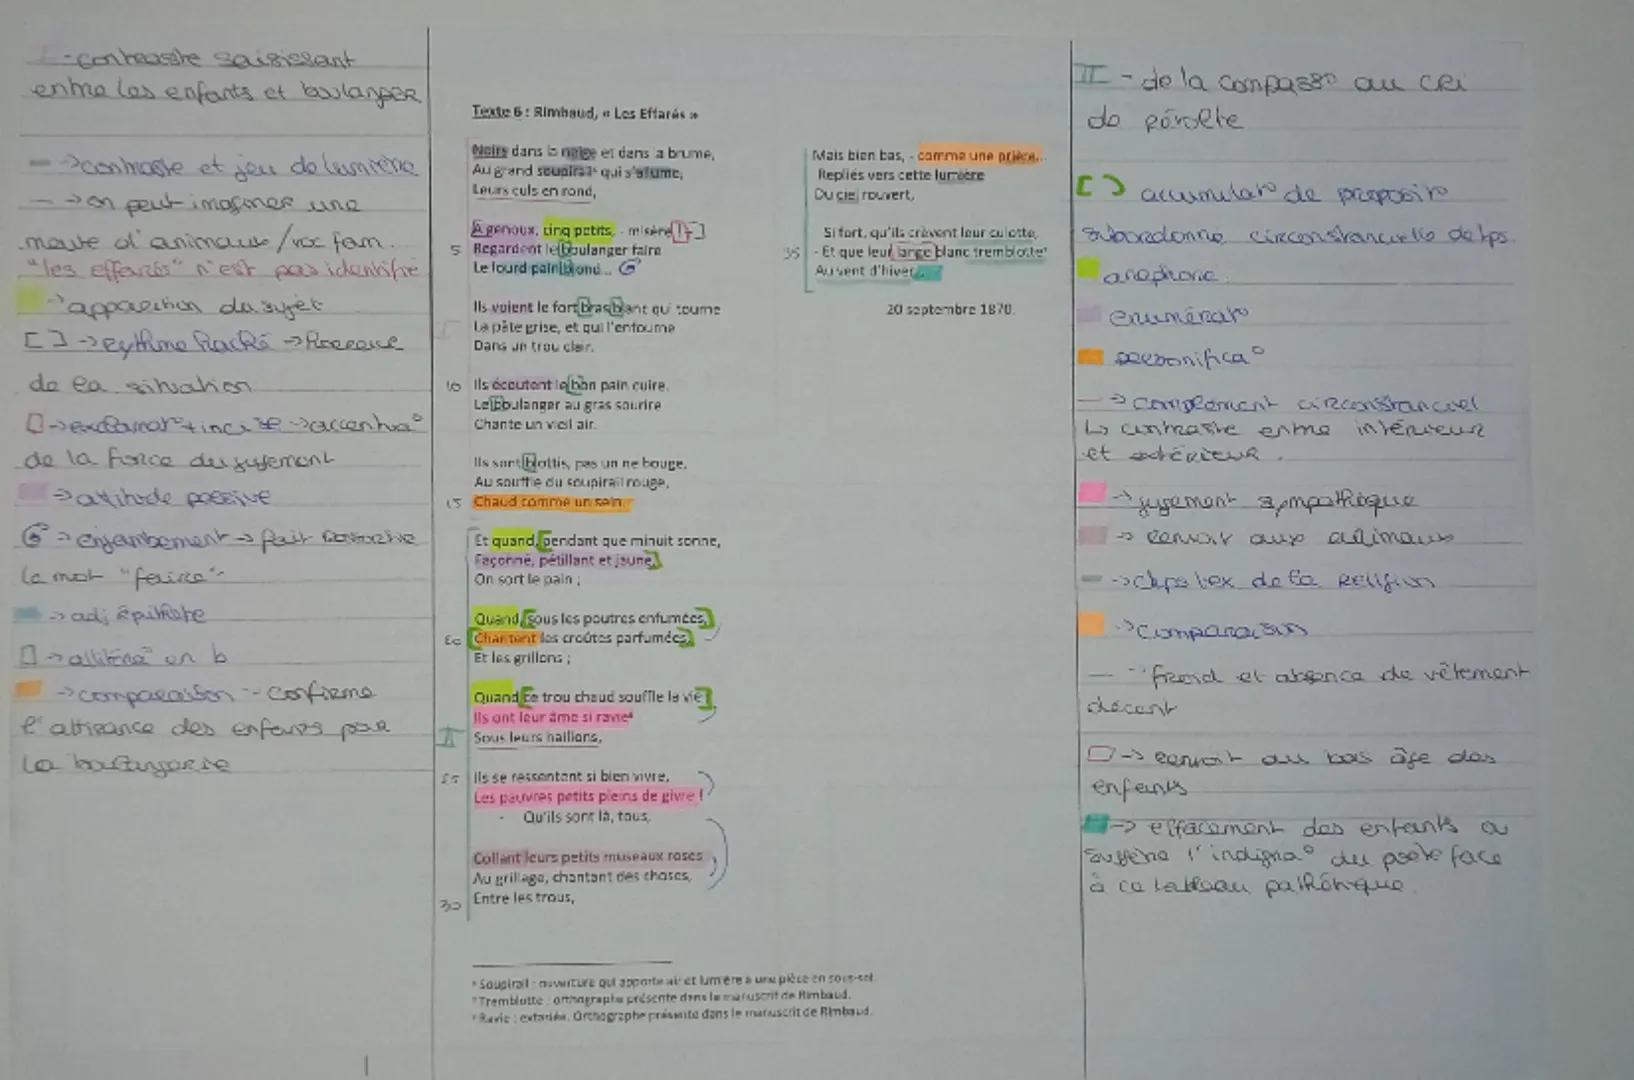 I - contraste saisissant
entre les enfants et boulanger
-> contraste et jeu de lumière
-> on peut imaginer une
meute d'animaux /voc fam.
"les effarés" n'est pas identifié
-> apparition du sujet
[ ] -> rythme haché ->
de la situation
-> exclamat° + incise -> accentua°
de la force du jugement
-> attitude passive
-> enjambement -> fait
le mot "faire"
-> adj épithète
-> allitéra° en b
-> comparaison - confirme
l'attirance des enfants pour
la boulangerie
Texte 6 : Rimbaud, « Les Effarés »
Noirs dans la neige et dans la brume,
Au grand soupirail¹ qui s'allume,
Leurs culs en rond,
A genoux, cinq petits, - misère ! - ]
5 Regardent le boulanger faire
Le lourd pain blond...
Ils voient le fort bras blanc qui tourne
La pâte grise, et qui l'enfourne
Dans un trou clair.
10 Ils écoutent le bon pain cuire.
Le boulanger au gras sourire
Chante un vieil air.
Ils sont blottis, pas un ne bouge,
Au souffle du soupirail rouge,
15 Chaud comme un sein.
Et quand, pendant que minuit sonne,
Façonné, pétillant et jaune,
On sort le pain ;
Quand, sous les poutres enfumées,
20 Chantent les croûtes parfumées,
Et les grillons ;
Quand ce trou chaud souffle la vie
Ils ont leur âme si ravie³
II Sous leurs haillons,
25 Ils se ressentent si bien vivre,
Les pauvres petits pleins de givre !
- Qu'ils sont là, tous,
Collant leurs petits museaux roses
Au grillage, chantant des choses,
30 Entre les trous,
Mais bien bas, - comme une prière...
Repliés vers cette lumière
Du ciel rouvert,
Si fort, qu'ils crèvent leur culotte,
35 - Et que leur lange blanc tremblotte²
Au vent d'hiver...
20 septembre 1870.
¹ Soupirail : ouverture qui apporte air et lumière à une pièce en sous-sol.
² Tremblotte : orthographe présente dans le manuscrit de Rimbaud.
³ Ravie : extasiée. Orthographe présente dans le manuscrit de Rimbaud.
II - de la compass° au cri
de révolte
[ ] accumulat° de proposit°
subordonné circonstancielle de tps.
anaphore
énumérat°
personnifica°
-> complément circonstanciel
↳ contraste entre intérieur
et extérieur.
-> jugement sympathique
-> renvoit aux animaux
-> chps lex de la Religion
-> comparaison
-> froid et absence de vêtement
décent
-> renvoit au bas âge des
enfants
-> effacement des enfants ou
suggère l'indigna° du poète face
à ce tableau pathétique.